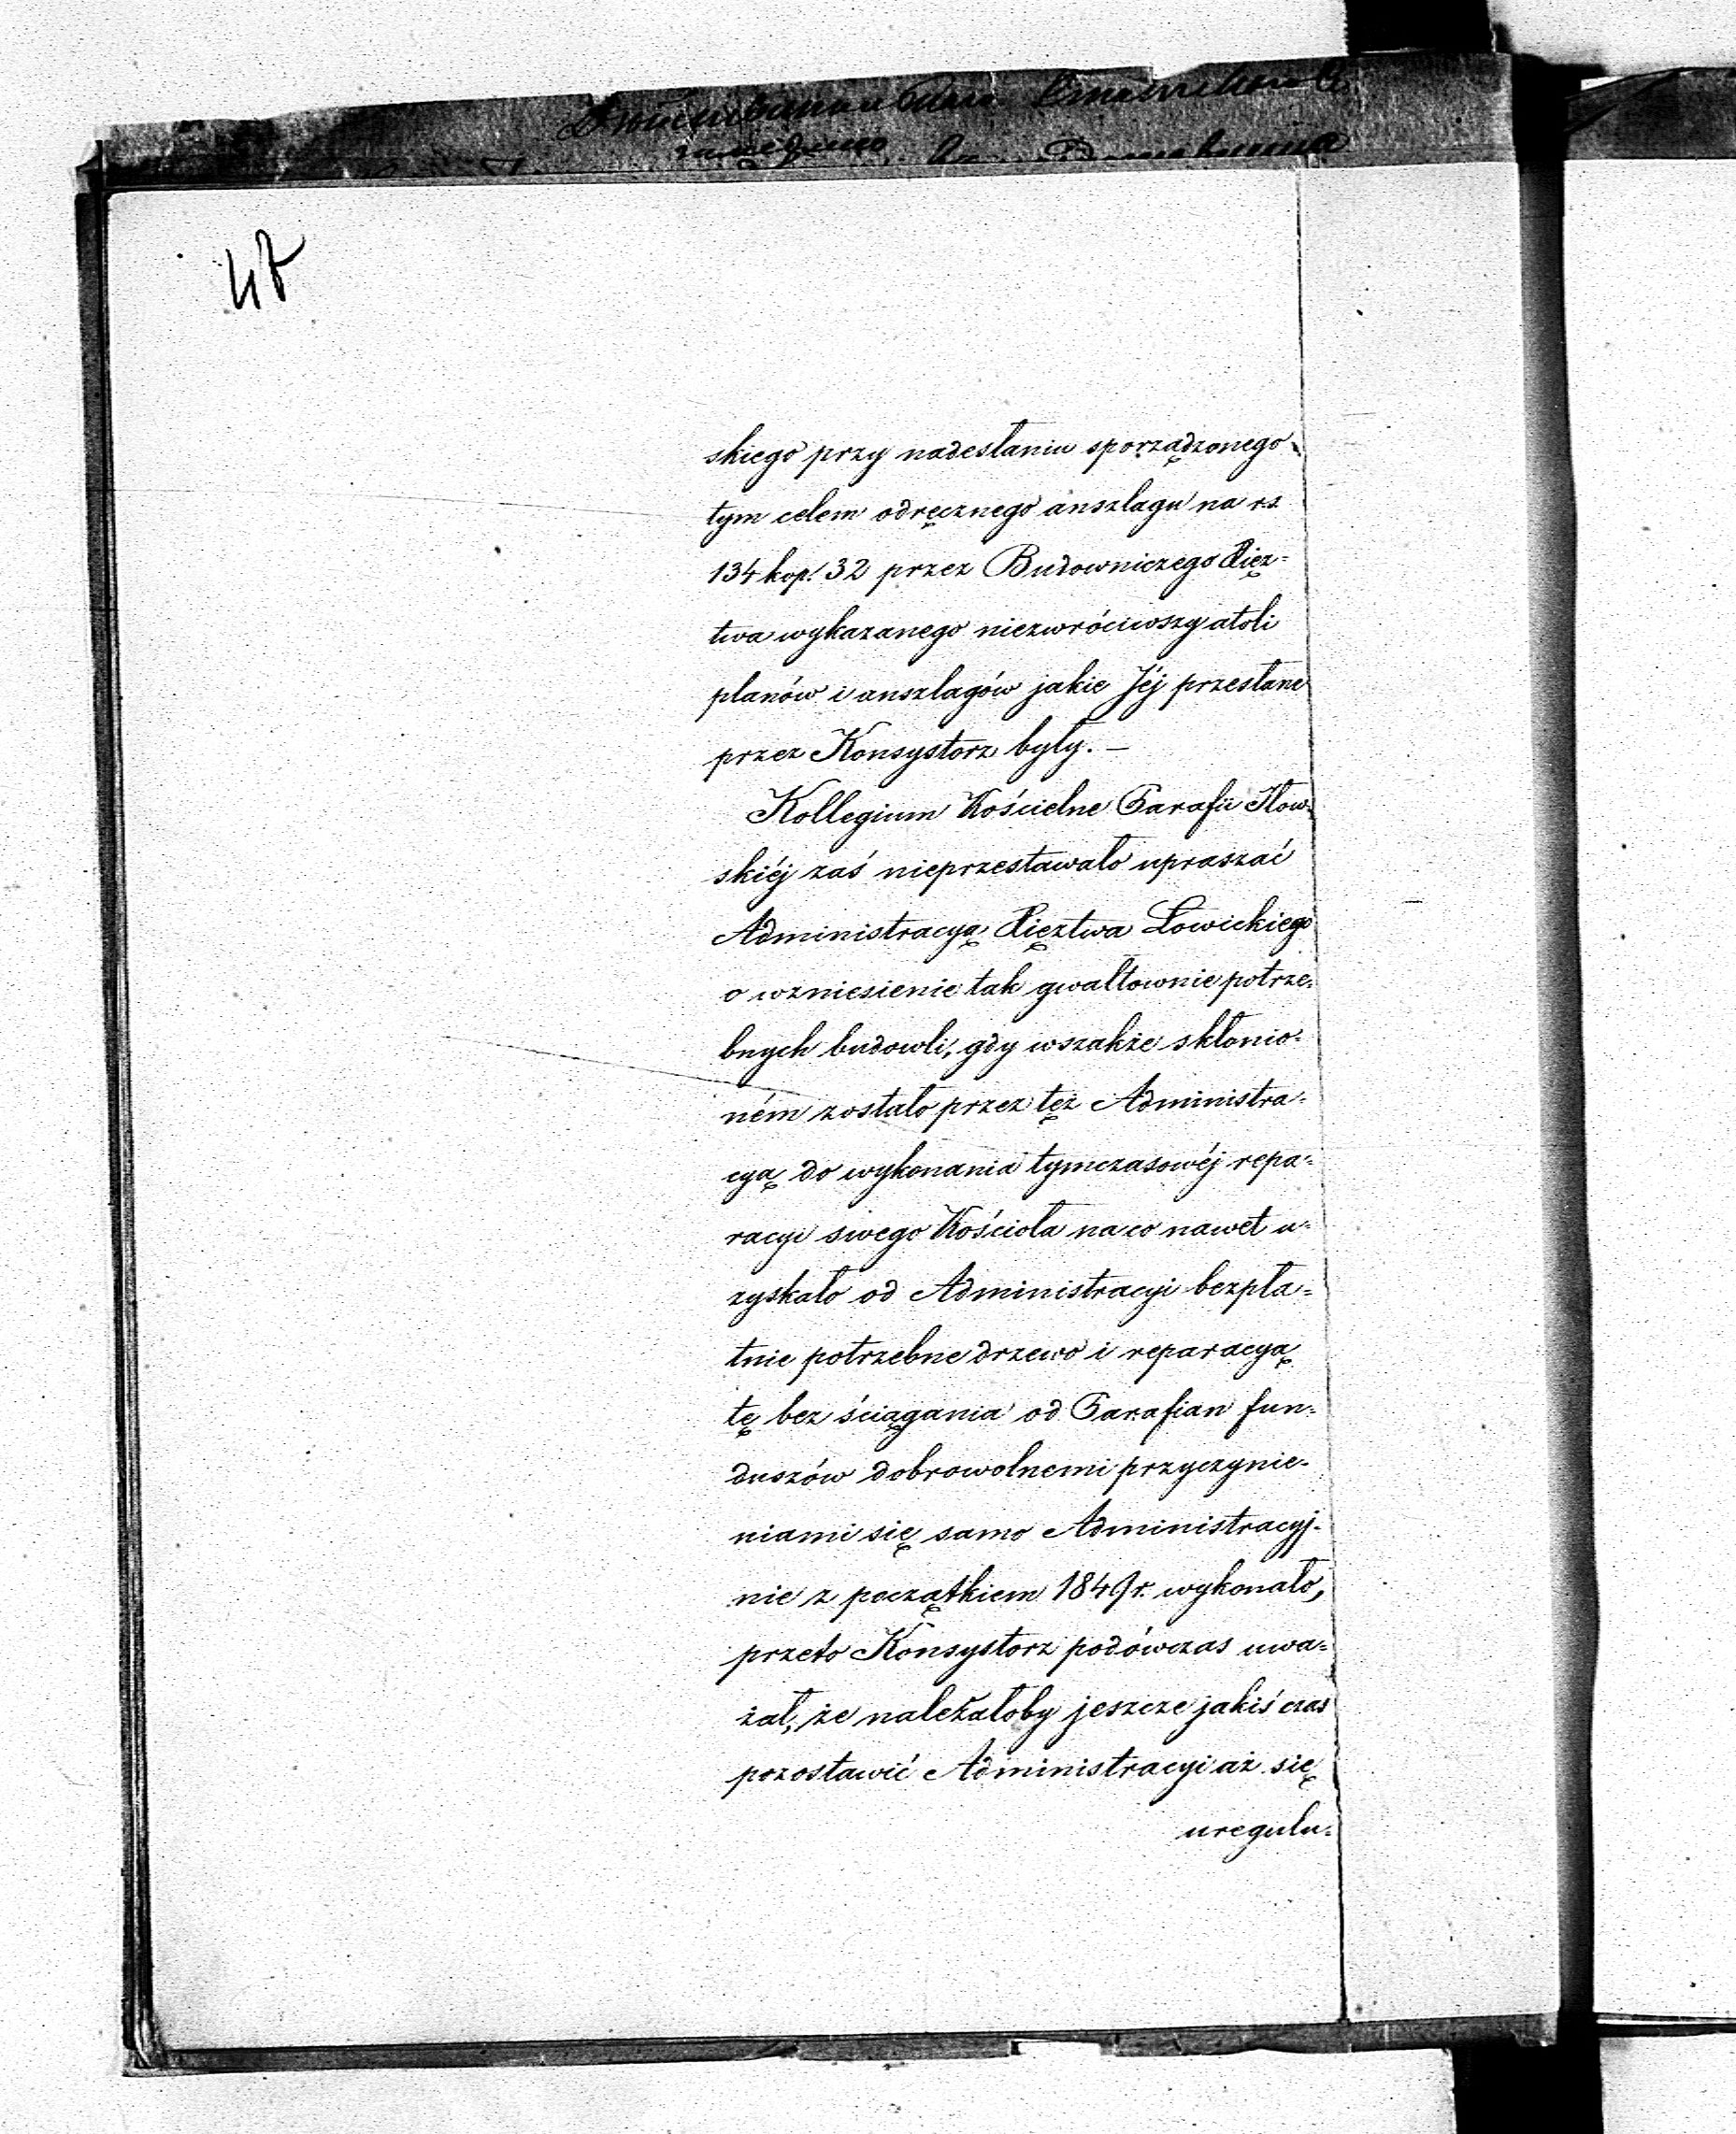 47
skiego przy nadesłaniu sporządzonego
tym celem odręcznego anszlagu na rs
134 kop. 32 przez Budowniczego Xięz-
twa wykazanego niezwróciwszy atoli
planów i anszlagów jakie Jéj przesłane
przez Konsystorz były. —
Kollegium Kościelne Parafii Iłow-
skiéj zaś nieprzestawało upraszać
Administracyą Xięztwa Łowickiego
o wzniesienie tak gwałtownie potrze-
bnych budowli, gdy wszakże skłonio-
ném zostało przez też Administra-
cyą do wykonania tymczasowéj repa-
racyi swego Kościoła na co nawet u-
zyskało od Administracyi bezpła-
tnie potrzebne drzewo i reparacyą
tę bez ściągania od Parafian fun-
duszów dobrowolnemi przyczynie-
niami się samo Administracyj-
nie z początkiem 1849 r. wykonało,
przeto Konsystorz podówczas uwa-
żał, że należałoby jeszcze jakiś czas
pozostawić Administracyi aż się
uregulu-